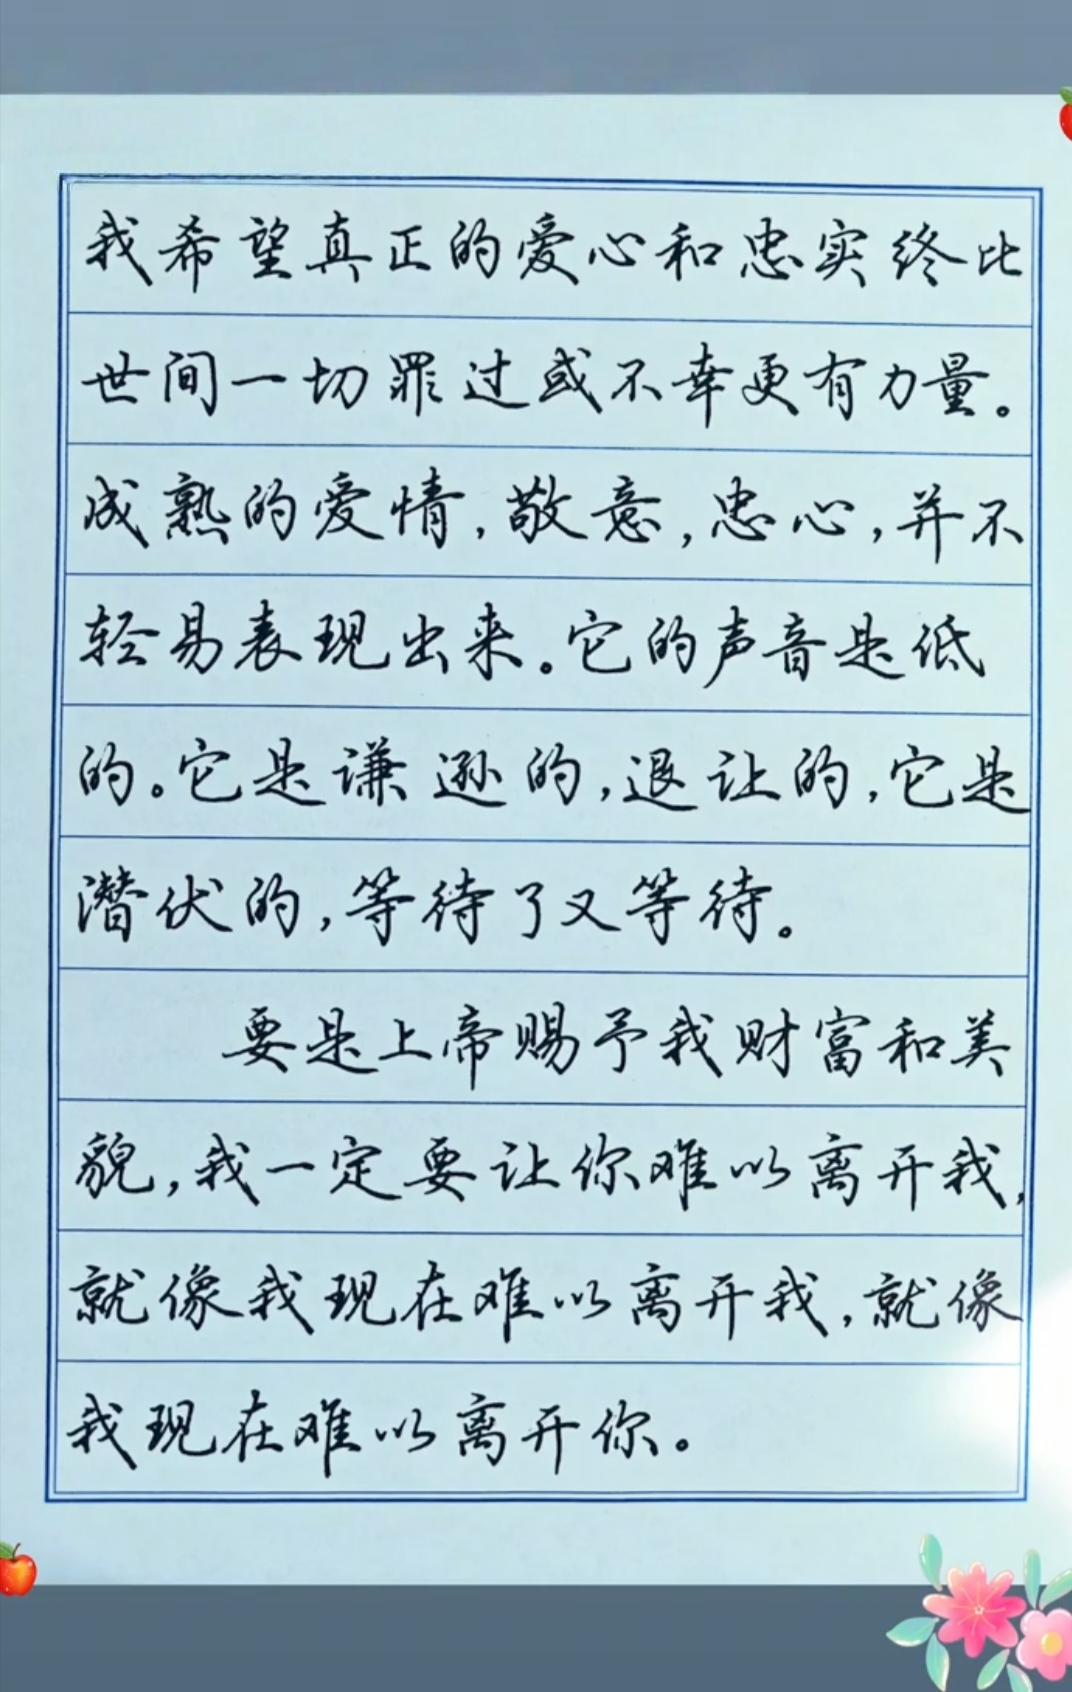 我希望真正的爱心和忠实终比
世间一切罪过或不幸更有力量。
成熟的爱情,敬意,忠心,并不
轻易表现出来。它的声音是低
的。它是谦逊的,退让的,它是
潜伏的,等待了又等待。
要是上帝赐予我财富和美
貌,我一定要让你难以离开我,
就像我现在难以离开我,就像
我现在难以离开你。